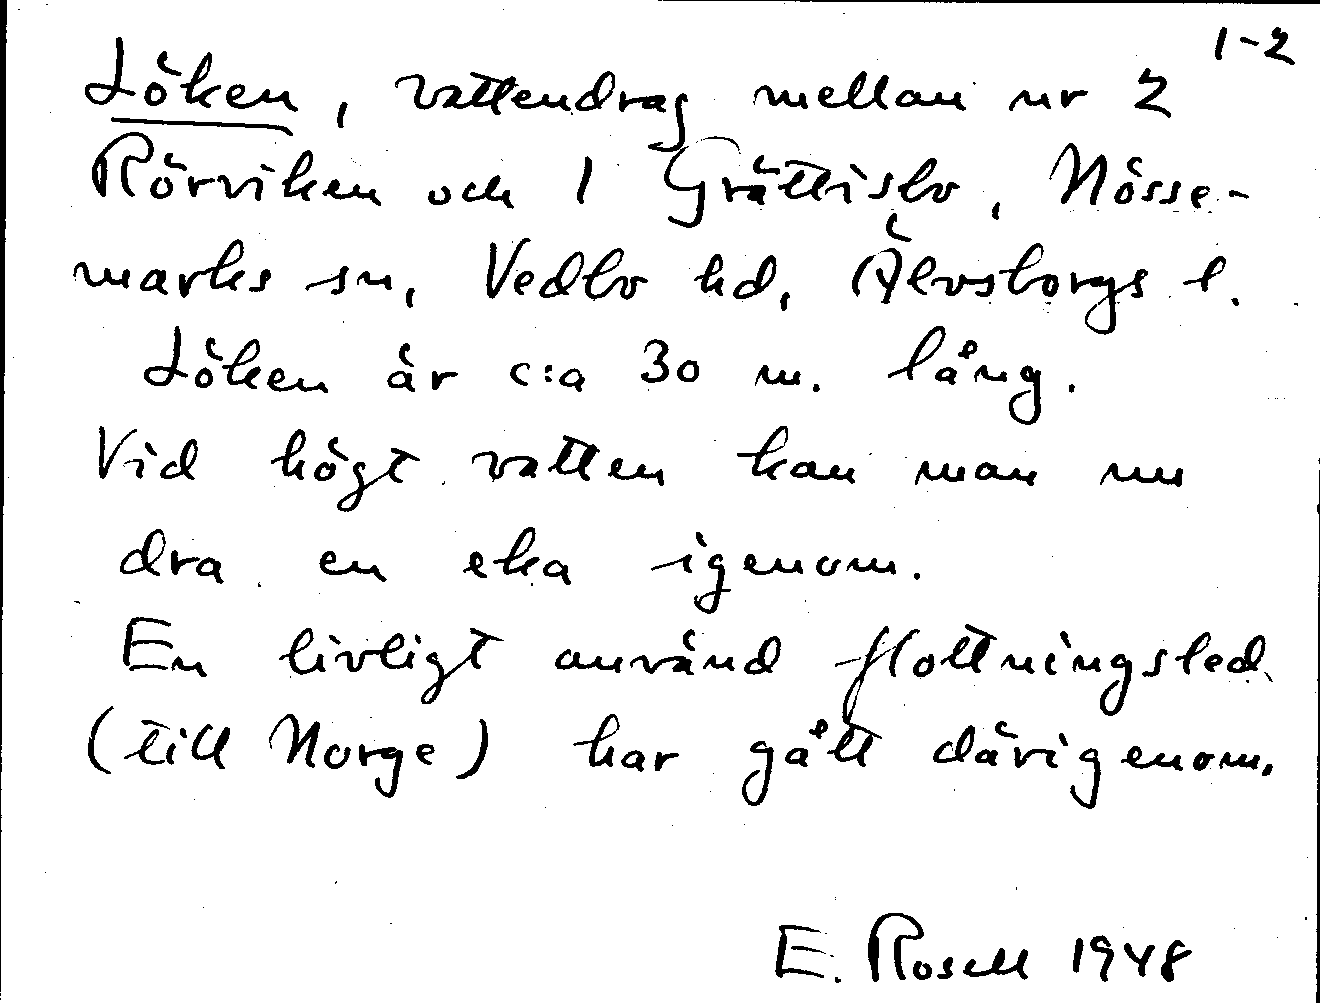 1-2
Löken, vattendrag mellan nr 2
Rörviken och 1 Grättisbo, Nösse-
marks sn, Vedbo hd, Älvsborgs l.
Löken är c:a 30 m. lång.
Vid högt vatten kan man nu
dra en eka igenom.
En livligt använd flottningsled
(till Norge) har gått därigenom.
E. Rosell 1948